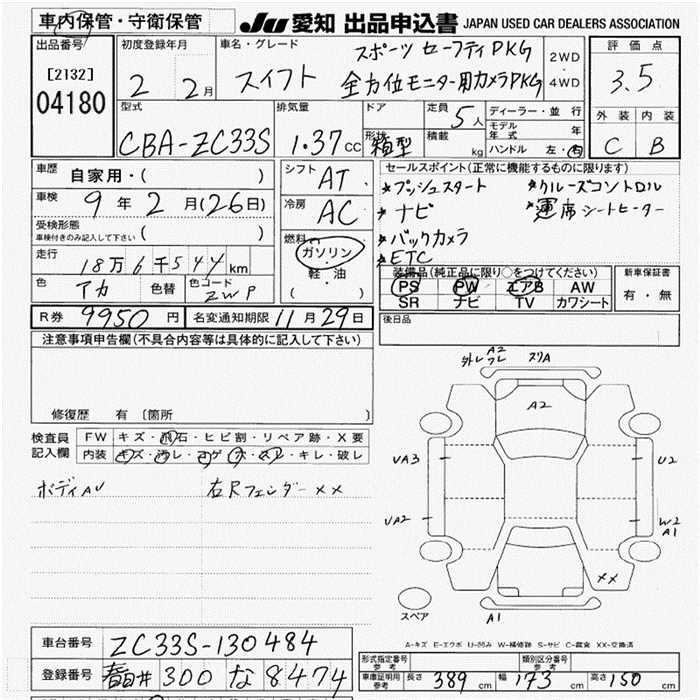 車内保管・守衛保管
JU 愛知 出品申込書 JAPAN USED CAR DEALERS ASSOCIATION
出品番号
[2132]
04180
初度登録年月
2 2月
車名・グレード
スイフト
スポーツ セーフティPKG
全方位モニター用カメラPKG
2WD
・
4WD
評価点
3.5
外装 内装
C B
型式
CBA-ZC33S
排気量
1.37cc
ドア
形状
箱型
定員 5人
積載 kg
ディーラー・並行
モデル年式 年
ハンドル 左・右
車歴 自家用・( )
車検 9年2月(26日)
受検形態
車検付きのみ記入して下さい ( )
走行
18万6千544km
色 アカ 色替 色コード ZWP
シフト AT
冷房 AC
燃料
ガソリン
軽・油
( )
セールスポイント(正常に機能するものに限ります)
*プッシュスタート *クルーズコントロル
*ナビ *運席シートヒーター
*バックカメラ
*ETC
装備品(純正品に限り○をつけてください)
PS PW エアB AW
SR ナビ TV カワシート
新車保証書
有・無
R券 9950円 名変通知期限 11月29日
後日品
注意事項申告欄(不具合内容等は具体的に記入して下さい)
修復歴 有〔箇所 〕
検査員記入欄
FW キズ・飛石・ヒビ割・リペア跡・X要
内装 キズ・汚レ・コゲ・穴・スレ・キレ・破レ
ボディAU 右Rフェンダー××
外レ A2 フレ スリA
A2
UA3
U2
UA2
W2
A1
××
スペア
A1
A-キズ E-エクボ U-凹み W-補修跡 S-サビ C-腐食 XX-交換済
車台番号 ZC33S-130484
登録番号 春日井 300 な 8474
形式指定番号
参考
類別区分番号
参考
車庫証明用
参考
長さ 389cm 幅 173cm 高さ 150cm